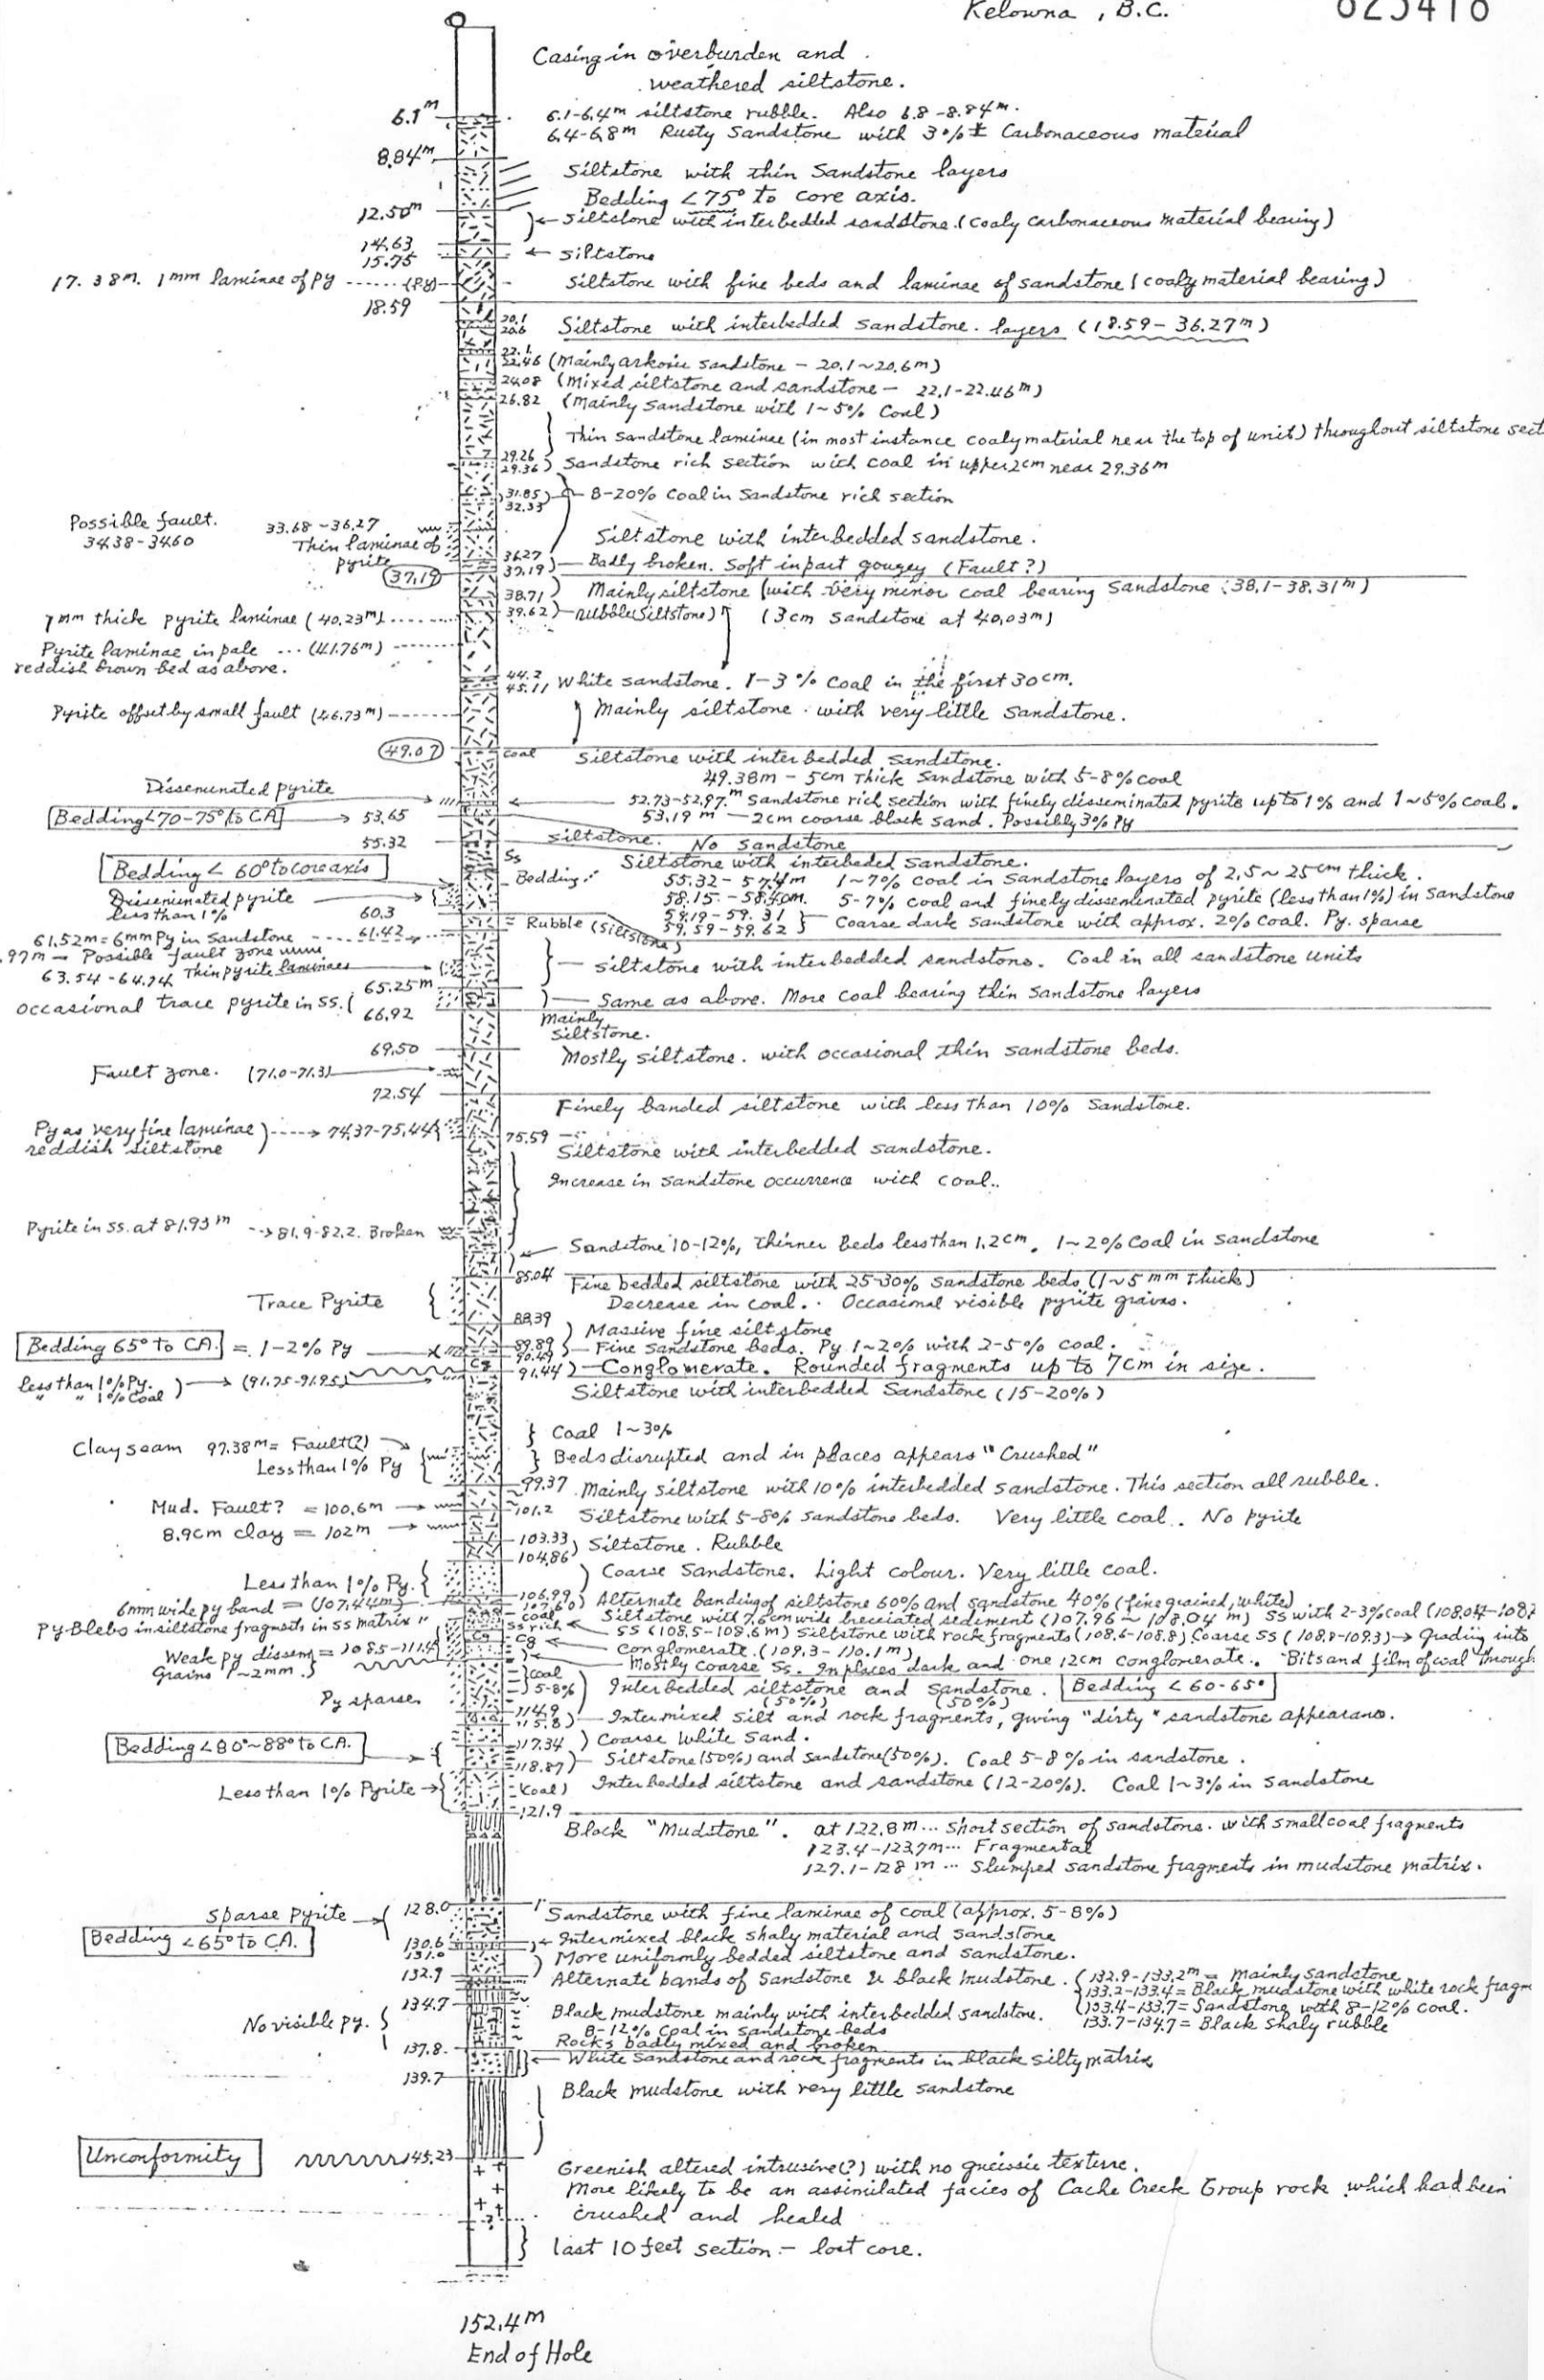 Kelowna, B.C.
Casing in overburden and
weathered siltstone.
6.1m
6.1-6.4m siltstone rubble. Also 6.8-8.84m.
6.4-6.8m Rusty Sandstone with 3%± Carbonaceous material
8.84m
Siltstone with thin Sandstone layers
Bedding <75° to core axis.
12.50m
Siltstone with interbedded sandstone. (coaly carbonaceous material bearing)
14.63
15.75
← siltstone
17.38m. 1mm laminae of py ...... (Py)
Siltstone with fine beds and laminae of sandstone (coaly material bearing)
18.59
20.1
20.6
Siltstone with interbedded sandstone. layers (18.59-36.27m)
22.1
22.46 (Mainly arkosic sandstone - 20.1~20.6m)
24.08 (Mixed siltstone and sandstone - 22.1-22.46m)
26.82 (Mainly sandstone with 1~5% Coal)
Thin sandstone laminae (in most instance coaly material near the top of unit) throughout siltstone sect
29.26
29.36) Sandstone rich section with coal in upper 2cm near 29.36m
31.85
32.33
8-20% Coal in Sandstone rich section
Possible fault.
34.38-34.60
33.68-36.27
Thin laminae of
pyrite
Siltstone with interbedded sandstone.
36.27
37.19) Badly broken. Soft in part gougey (Fault?)
37.19
38.71) Mainly siltstone (with very minor coal bearing Sandstone: 38.1-38.31m)
39.62) rubble (Siltstone) (3cm Sandstone at 40.03m)
7mm thick pyrite laminae (40.23m)
Pyrite laminae in pale ... (41.76m)
reddish brown bed as above.
44.2
45.11 White sandstone. 1-3% Coal in the first 30cm.
Pyrite offset by small fault (46.73m)
Mainly siltstone. with very little Sandstone.
49.07
coal
Siltstone with interbedded sandstone.
49.38m - 5cm Thick Sandstone with 5-8% coal
Disseminated pyrite
52.73-52.97m Sandstone rich section with finely disseminated pyrite up to 1% and 1~5% coal.
Bedding <70-75° to CA → 53.65
53.19m - 2cm coarse black sand. Possibly 3% Py
55.32
siltstone. No Sandstone
Ss
Siltstone with interbeded Sandstone.
Bedding < 60° to core axis
Bedding
55.32-57.4m 1~7% Coal in Sandstone layers of 2.5~25cm thick.
Disseminated pyrite
less than 1%
58.15-58.40m. 5-7% Coal and finely disseminated pyrite (less than 1%) in Sandstone
60.3
59.19-59.31
59.59-59.62 } Coarse dark Sandstone with approx. 2% Coal. Py. sparse
Rubble (Siltstone)
61.42
61.52m = 6mm Py in Sandstone
.97m - Possible fault zone
63.54-64.74 Thin pyrite laminae
Siltstone with interbedded sandstone. Coal in all sandstone units
65.25m
Same as above. More coal bearing thin Sandstone layers
Occasional trace pyrite in SS.
66.92
Mainly
Siltstone.
69.50
Mostly siltstone. with occasional thin sandstone beds.
Fault zone. (71.0-71.3)
72.54
Finely banded siltstone with less than 10% Sandstone.
Py as very fine laminae
reddish siltstone
74.37-75.44
75.59
Siltstone with interbedded sandstone.
Increase in Sandstone occurrence with coal..
Pyrite in SS. at 81.93m → 81.9-82.2. Broken
Sandstone 10-12%, Thinner Beds less than 1.2cm. 1~2% Coal in sandstone
85.04
Fine bedded siltstone with 25-30% Sandstone beds (1~5mm Thick)
Trace Pyrite
Decrease in coal. Occasional visible pyrite grains.
88.39
Massive fine siltstone
Bedding 65° to CA. = 1-2% Py
89.89 Fine Sandstone beds. Py 1~2% with 2-5% Coal.
90.49
Cg
91.44) Conglomerate. Rounded fragments up to 7cm in size.
less than 1% Py.
" " 1% Coal
(91.75-91.95)
Siltstone with interbedded Sandstone (15-20%)
Coal 1~3%
Clay seam 97.38m = Fault(?)
Less than 1% Py
Beds disrupted and in places appears "Crushed"
99.37 Mainly siltstone with 10% interbedded sandstone. This section all rubble.
Mud. Fault? = 100.6m
101.2
Siltstone with 5-8% sandstone beds. Very little coal. No pyrite
8.9cm clay = 102m
103.33
104.86
Siltstone. Rubble
Coarse Sandstone. Light colour. Very little coal.
Less than 1% Py.
106.99) Alternate banding of siltstone 60% and sandstone 40% (fine grained, white)
107.60
6mm wide py band = (107.44m)
coal
Siltstone with 7.6cm wide breciated sediment (107.96~108.04m) SS with 2-3% coal (108.04-108.
Py-Blebs in siltstone fragments in SS matrix "
SS rich
SS (108.5-108.6m) Siltstone with rock fragments (108.6-108.8) Coarse SS (108.8-109.3) → Grading into
Cg
Conglomerate. (109.3-110.1m)
Weak py dissem = 108.5-111.4
Grains 1~2mm.
Mostly Coarse Ss. In places dark and one 12cm conglomerate. Bits and film of coal through
coal
5-8%
Interbedded siltstone and sandstone. Bedding < 60-65°
(50%) (50%)
Py sparse.
114.9
115.8
Intermixed Silt and rock fragments, giving "dirty" sandstone appearance.
117.34 ) Coarse White Sand.
Bedding <80°~88° to CA.
118.87 Siltstone (50%) and sandstone (50%). Coal 5-8% in sandstone.
Less than 1% Pyrite →
(Coal) Interbedded siltstone and sandstone (12-20%). Coal 1~3% in sandstone
121.9
Black "Mudstone". at 122.8m ... short section of sandstone. with small coal fragments
123.4-123.7m ... Fragmental
127.1-128m ... Slumped sandstone fragments in mudstone matrix.
sparse pyrite
128.0
Sandstone with fine laminae of coal (approx. 5-8%)
Bedding <65° to CA.
130.6
131.0
Intermixed black shaly material and sandstone
More uniformly bedded siltstone and sandstone.
132.9
Alternate bands of Sandstone & black mudstone. 132.9-133.2m = Mainly sandstone
133.2-133.4 = Black mudstone with white rock fragm
133.4-133.7 = Sandstone with 8-12% coal.
133.7-134.7 = Black shaly rubble
134.7
No visible py.
Black mudstone mainly with interbedded sandstone.
8-12% Coal in sandstone beds
Rocks badly mixed and broken
137.8
← White Sandstone and rock fragments in black silty matrix
139.7
Black mudstone with very little sandstone
Unconformity
145.23
Greenish altered intrusive(?) with no gneissic texture.
More likely to be an assimilated facies of Cache Creek Group rock which had been
crushed and healed
last 10 feet section - lost core.
152.4m
End of Hole